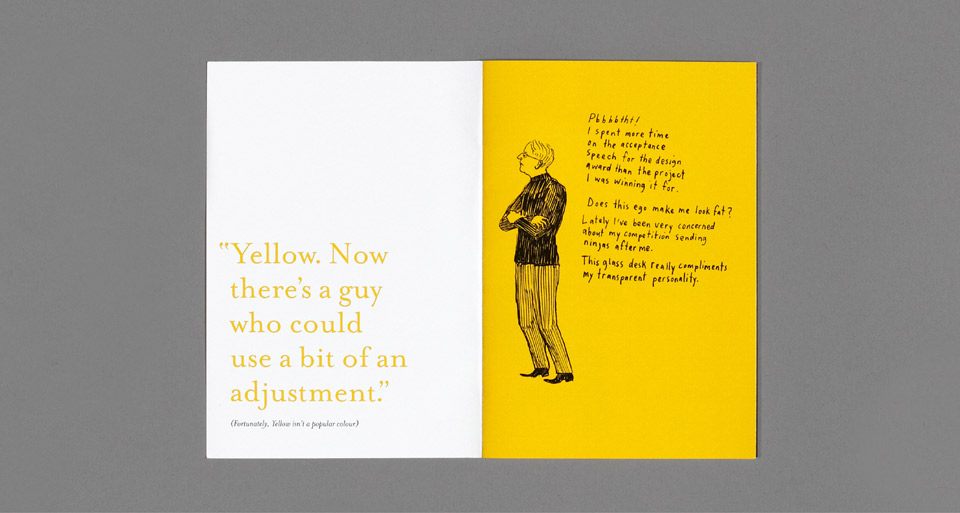 “Yellow. Now
there’s a guy
who could
use a bit of an
adjustment.”
(Fortunately, Yellow isn't a popular colour)
Pbbbbtht!
I spent more time
on the acceptance
speech for the design
award than the project
I was winning it for.
Does this ego make me look fat?
Lately I've been very concerned
about my competition sending
ninjas after me.
This glass desk really compliments
my transparent personality.